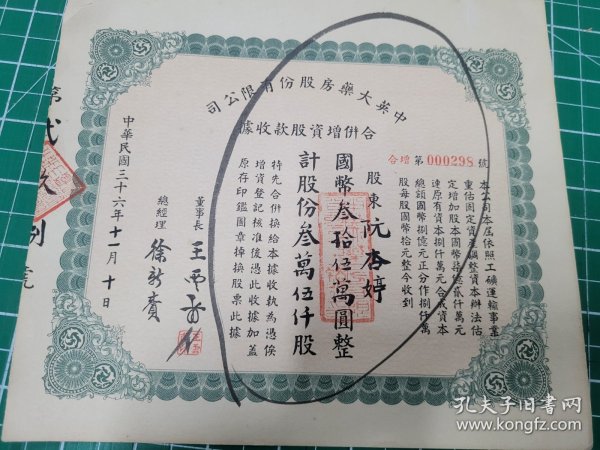 中英大藥房股份有限公司
合併增資股款收據
合增第000298號
本公司本屆依照工礦運輸事業
重估固定資產調整資本辦法估
定增加股本國幣
達原有資本捌仟萬元合成資本
總額國幣捌億元正分作捌仟萬
股每股國幣拾元整今收到
股東 阮杏婷
國幣叁拾伍萬圓整
計股份叁萬伍仟股
特先合併換給本據收執為憑俟
增資登記核准後憑此收據加蓋
原存印鑑圖章掉換股票此據
董事長
總經理 徐新賚
中華民國三十六年十一月十日
孔夫子旧书网
www.kongfz.com